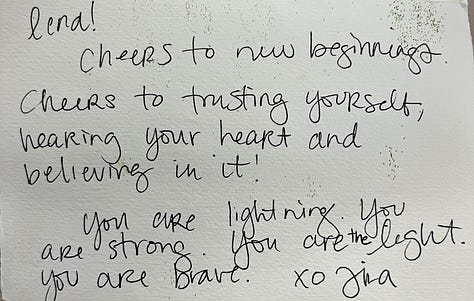 lena!
Cheers to new beginnings.
Cheers to trusting yourself,
hearing your heart and
believing in it!
You are lightning. You
are strong. You are the light.
You are Brave. xo Jina